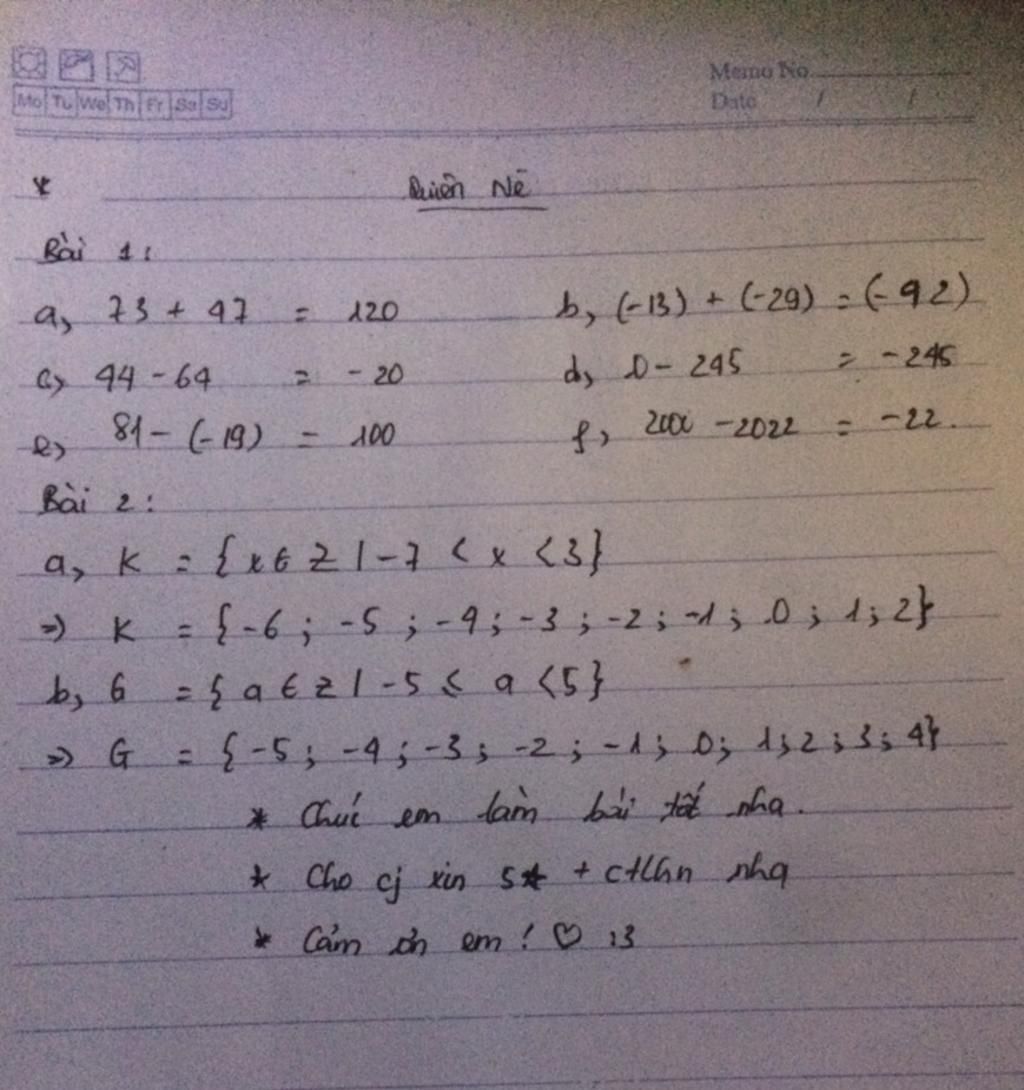 Mo Tu We Th Fr Sa Su
Memo No.
Date / /
*
Bài 1:
a, 73 + 47 = 120 b, (-13) + (-29) = (-42)
c, 44 - 64 = -20 d, 0 - 245 = -245
e, 81 - (-19) = 100 f, 2000 - 2022 = -22.
Bài 2:
a, K = {x ∈ Z | -7 < x < 3}
=> K = {-6; -5; -4; -3; -2; -1; 0; 1; 2}
b, G = {a ∈ Z | -5 ≤ a < 5}
=> G = {-5; -4; -3; -2; -1; 0; 1; 2; 3; 4}
* Chúc em làm bài tốt nha.
* Cho cj xin 5★ + ctlhn nha
* Cảm ơn em! ♡ :3